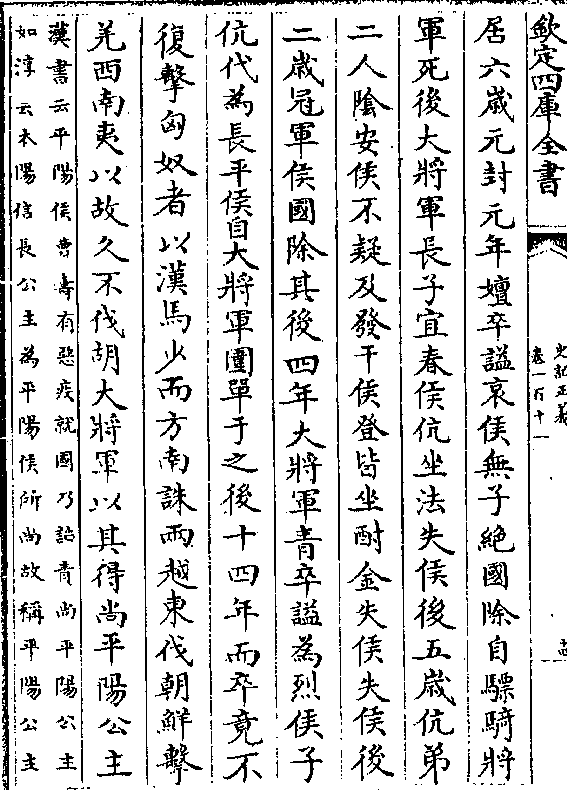 欽定四庫全書
史記正義
卷一百十一
居六歲元封元年嬗卒謚哀侯無子絶國除自驃騎將
軍死後大將軍長子宜春侯伉坐法失侯後五歲伉弟
二人隂安侯不疑及發干侯登皆坐酎金失侯失侯後
二歲冠軍侯國除其後四年大將軍青卒謚為烈侯子
伉代為長平侯自大將軍圍單于之後十四年而卒竟不
復擊匈奴者以漢馬少而方南誅兩越東伐朝鮮擊
羌西南夷以故久不伐胡大將軍以其得尚平陽公主
漢書云平陽侯曹壽有惡疾就國乃詔青尚平陽公主
如淳云本陽信長公主為平陽侯所尚故稱平陽公主